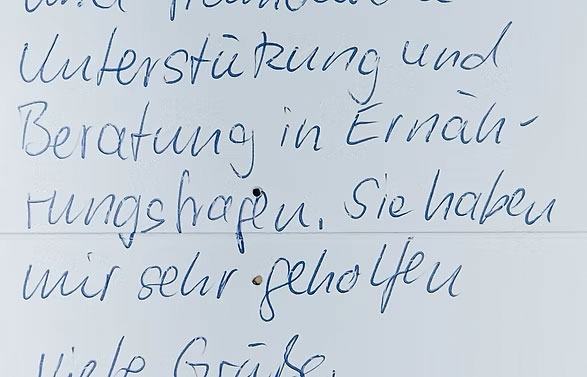 und
Unterstützung und
Beratung in Ernäh-
rungsfragen. Sie haben
mir sehr geholfen
Viele Grüße,